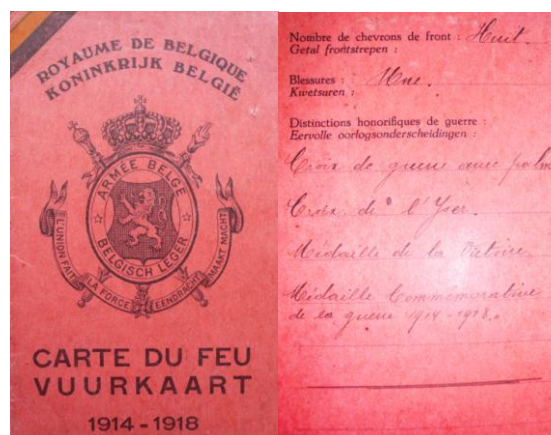 ROYAUME DE BELGIQUE
KONINKRIJK BELGIË
ARMÉE BELGE
BELGISCH LEGER
L'UNION FAIT LA FORCE
EENDRACHT MAAKT MACHT
CARTE DU FEU
VUURKAART
1914-1918
Nombre de chevrons de front : Huit.
Getal frontstrepen :
Blessures : Une.
Kwetsuren :
Distinctions honorifiques de guerre :
Eervolle oorlogsonderscheidingen :
Croix de guerre avec palm
Croix de l'Yser.
Médaille de la Victoire
Médaille Commémorative
de la guerre 1914-1918.